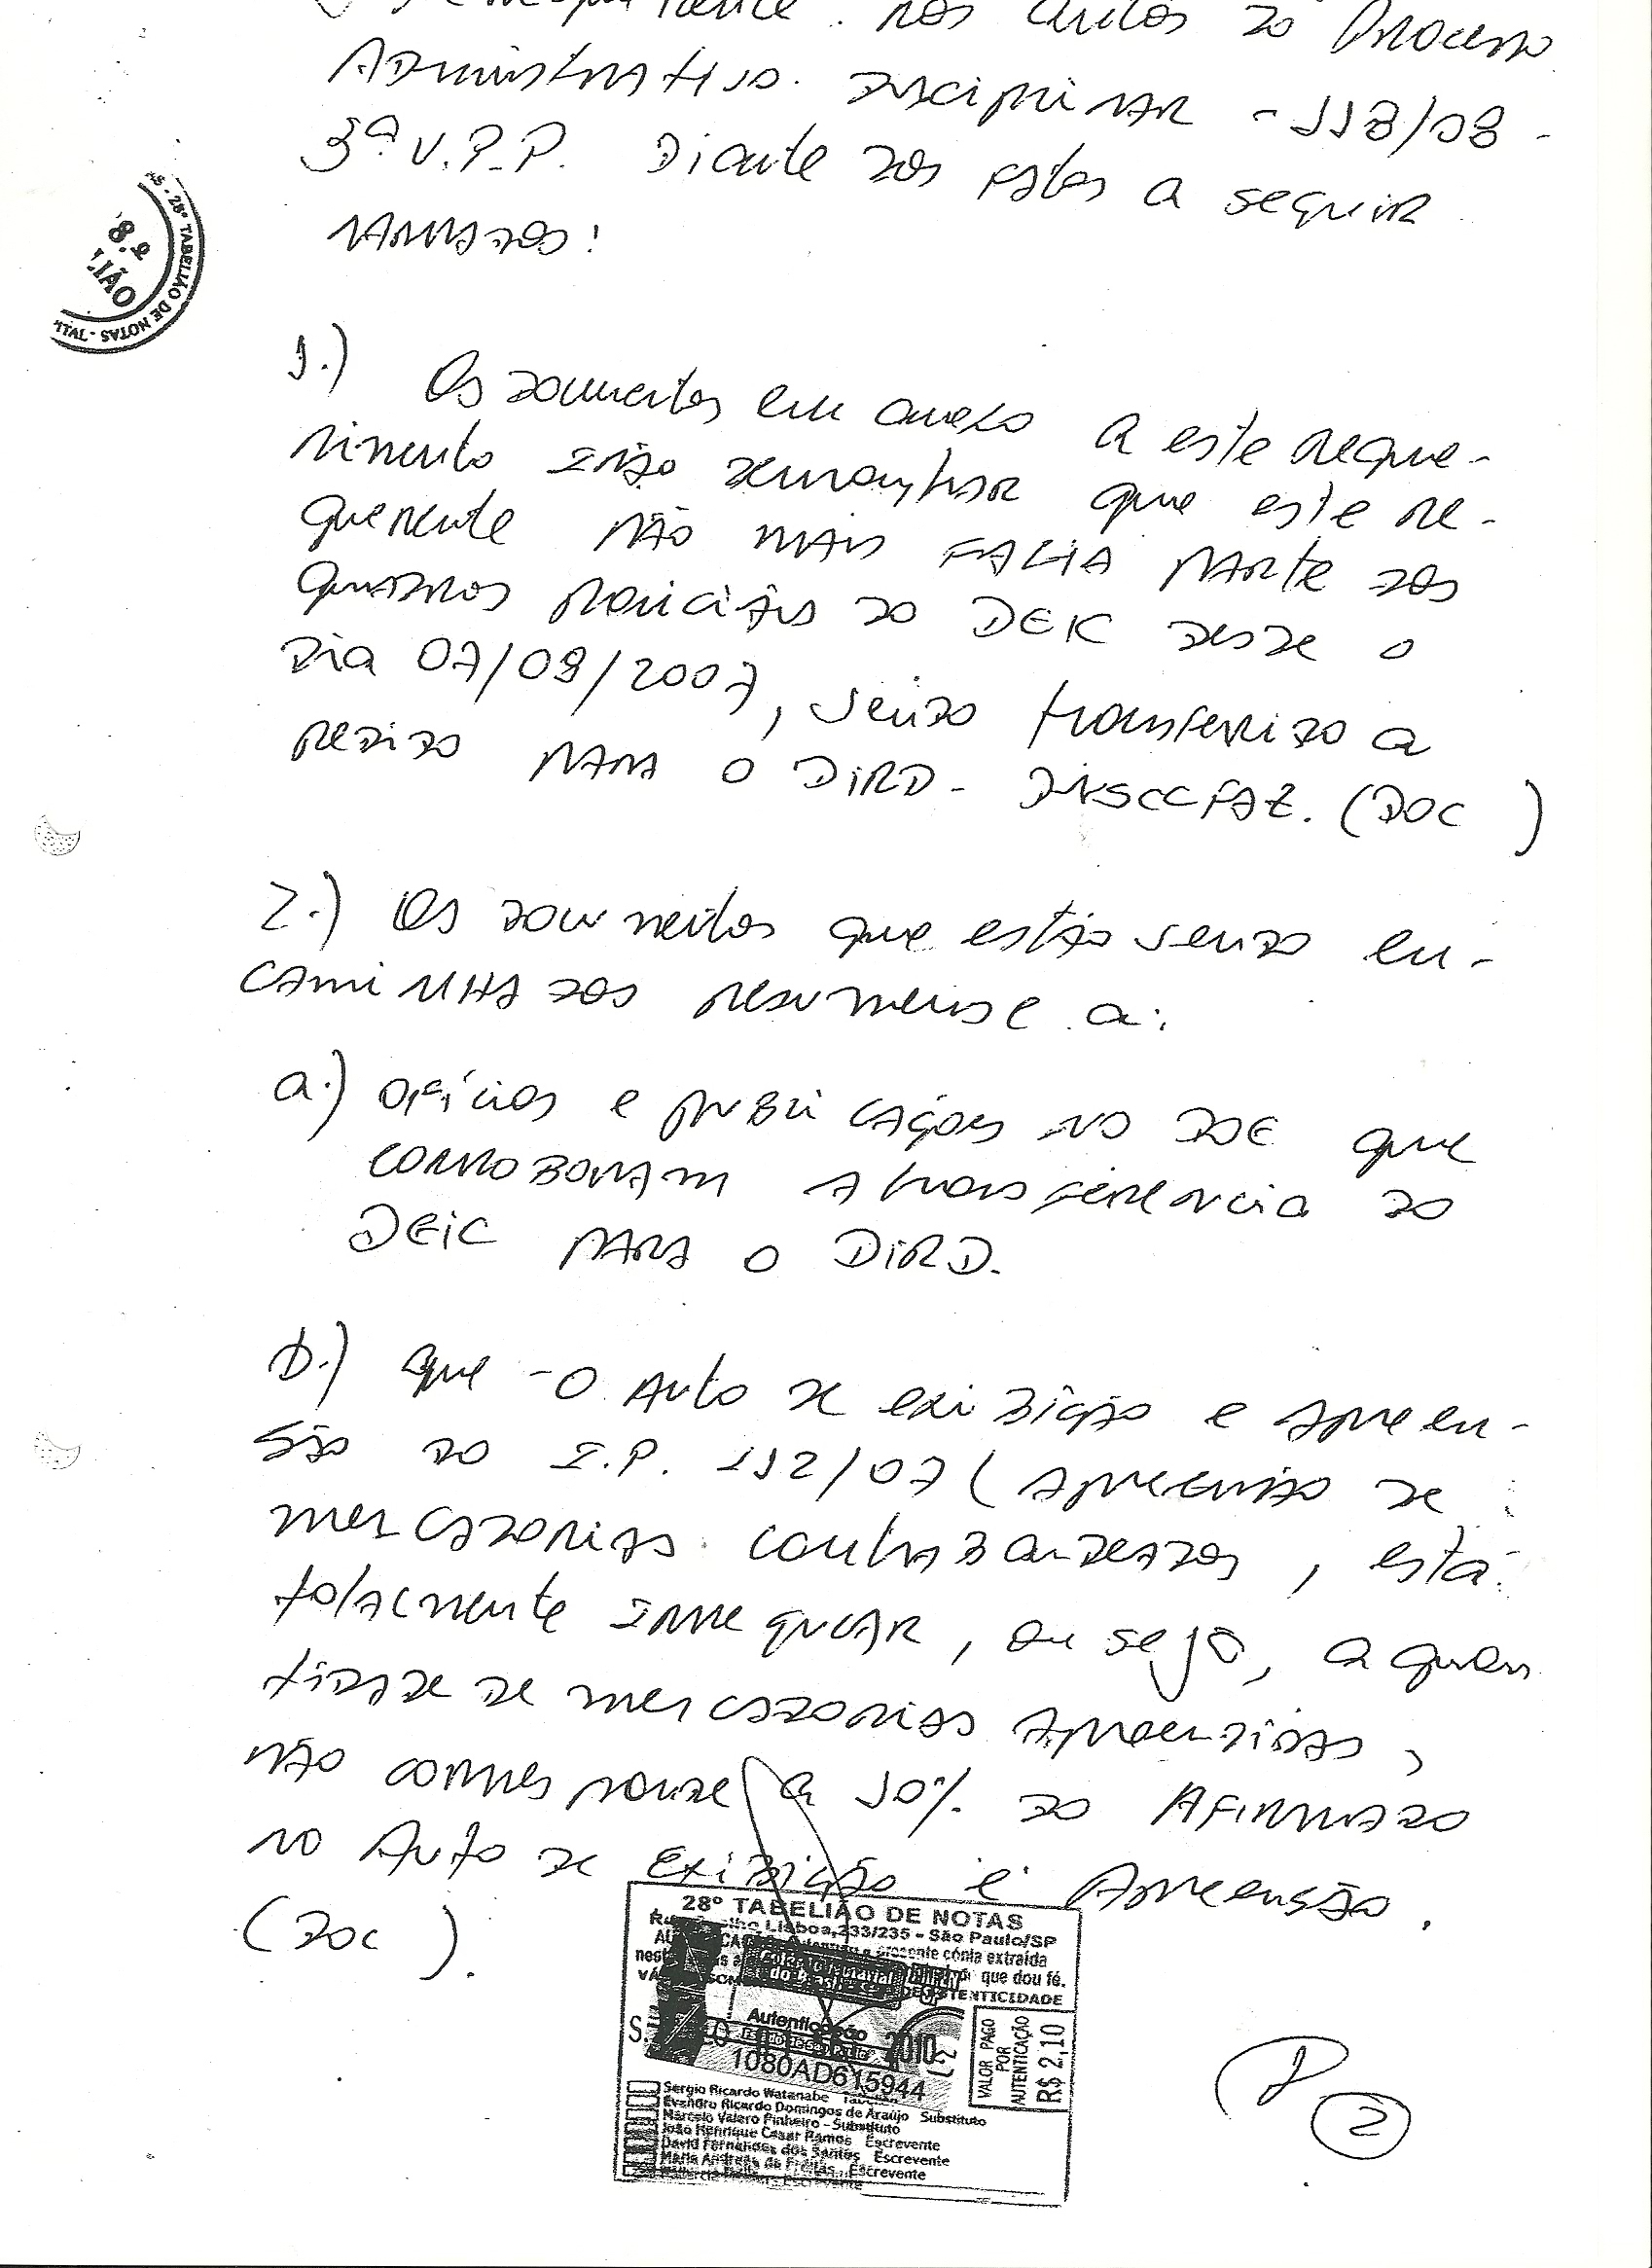 nos autos do Processo
Administrativo Disciplinar - 118/08 -
3ª V.P.P. Diante dos fatos a seguir
narrados:
1.) Os documentos em anexo a este reque-
rimento irão demonstrar que este re-
querente não mais FAZIA parte dos
quadros policiais do DEIC desde o
Dia 07/08/2007, sendo transferido a
pedido para o DIRD - DIVSCCFAZ. (DOC )
2.) Os documentos que estão sendo en-
caminhados resumense a:
a.) ofícios e publicações no DOE que
corroboram a transferencia do
DEIC para o DIRD.
b.) que - o Auto de exibição e apreen-
são do I.P. 112/07 (apreensão de
mercadorias contrabandeadas, está
totalmente irregular, ou seja, a quan
tidade de mercadorias apreendidas,
não corresponde a 10% do afirmado
no Auto de Exibição e Apreensão.
(DOC ).
28º TABELIÃO DE NOTAS
Lisboa, 233/235 - São Paulo/SP
presente cópia extraída
que dou fé.
AUTENTICIDADE
Autenticação
2010
1080AD615944
VALOR PAGO
POR
AUTENTICAÇÃO
R$ 2,10
Sergio Ricardo Watanabe
Evandro Ricardo Domingos de Araújo Substituto
Marcelo Valero Pinheiro - Substituto
João Henrique Cesar Ramos Escrevente
David Fernandes dos Santos Escrevente
Maria Andreza de Freitas Escrevente
28º TABELIÃO DE NOTAS
2